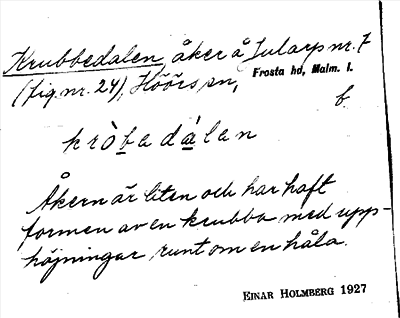 Krubbedalen, åker å Jularp nr. 7
(fig. nr. 24), Höörs sn, Frosta hd, Malm. l.
b.
kròbadálan
Åkern är liten och har haft
formen av en krubba med upp-
höjningar runt om en håla.
EINAR HOLMBERG 1927